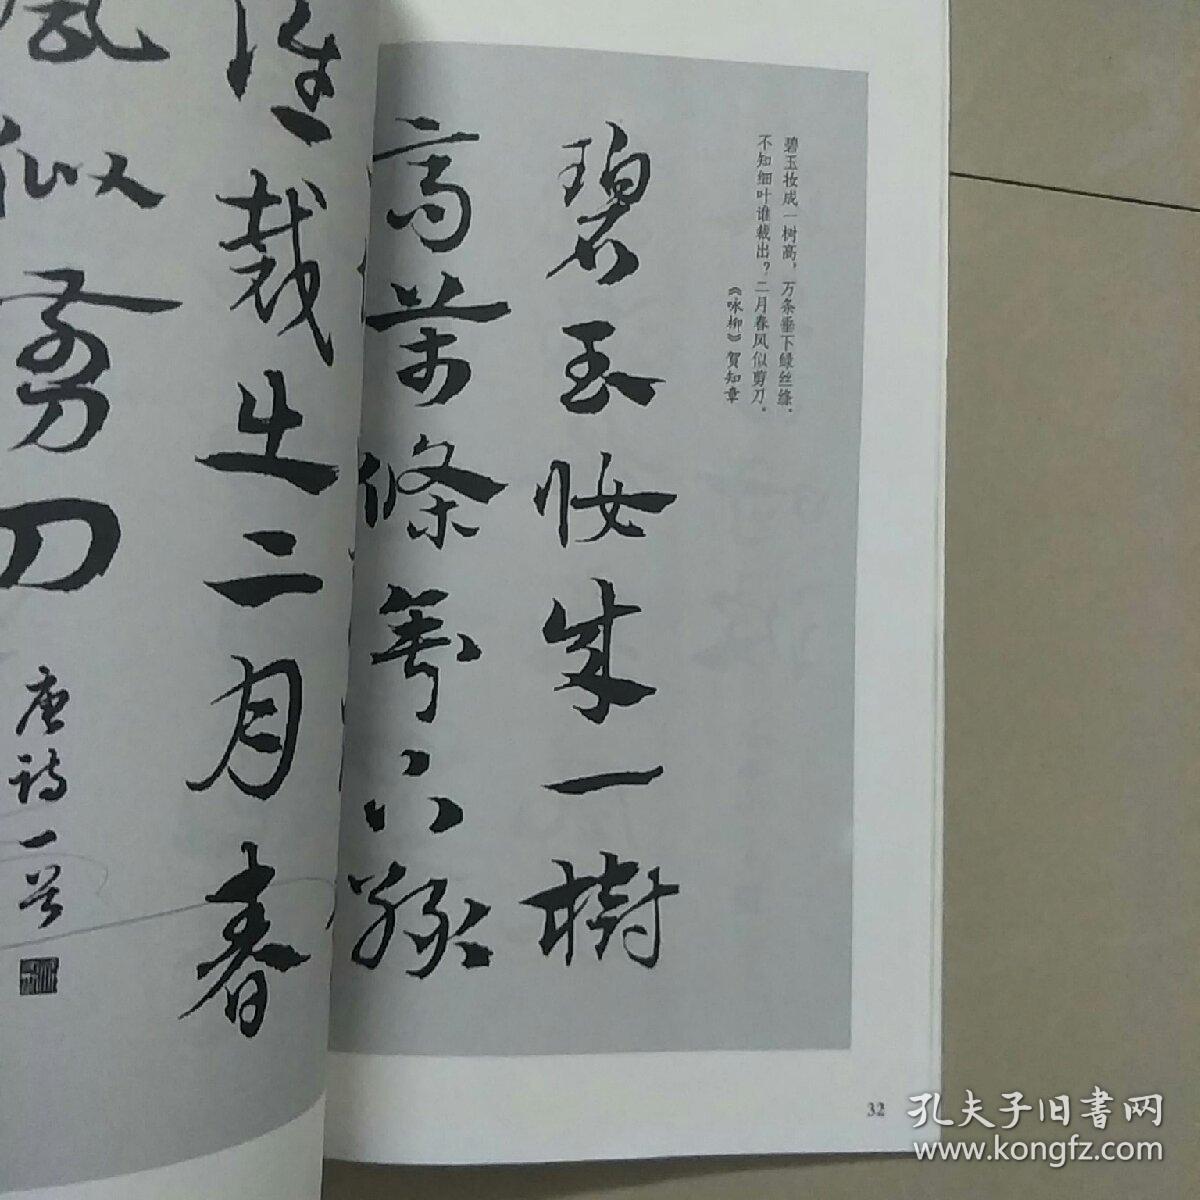 碧玉妆成一树高，万条垂下绿丝绦。
不知细叶谁裁出？二月春风似剪刀。
《咏柳》贺知章
碧玉妝成一樹
高萬條垂下綠
誰裁出二月春
風似剪刀
唐诗一首
32
孔夫子旧書网
www.kongfz.com